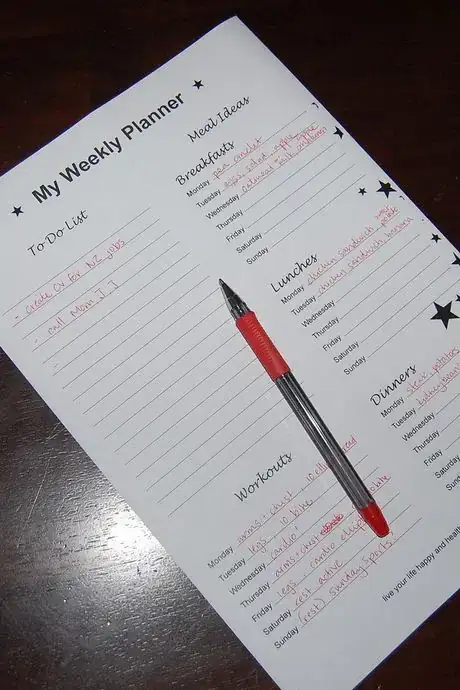 My Weekly Planner
To Do List
- create CV for NZ jobs
- call Mom J J
-
Meal Ideas
Breakfasts
Monday omelet
Tuesday eggs, salad, apple
Wednesday oatmeal milk
Thursday
Friday
Saturday
Sunday
Lunches
Monday chicken sandwich
Tuesday chicken sandwich, banana
Wednesday
Thursday
Friday
Saturday
Sunday
Dinners
Monday steak, potatoes
Tuesday
Wednesday
Thursday
Friday
Saturday
Sunday
Workouts
Monday arms + chest, 10
Tuesday legs, 10 bike
Wednesday cardio
Thursday arms + chest
Friday legs cardio
Saturday rest active
Sunday (rest) sunday sports!
live your life happy and